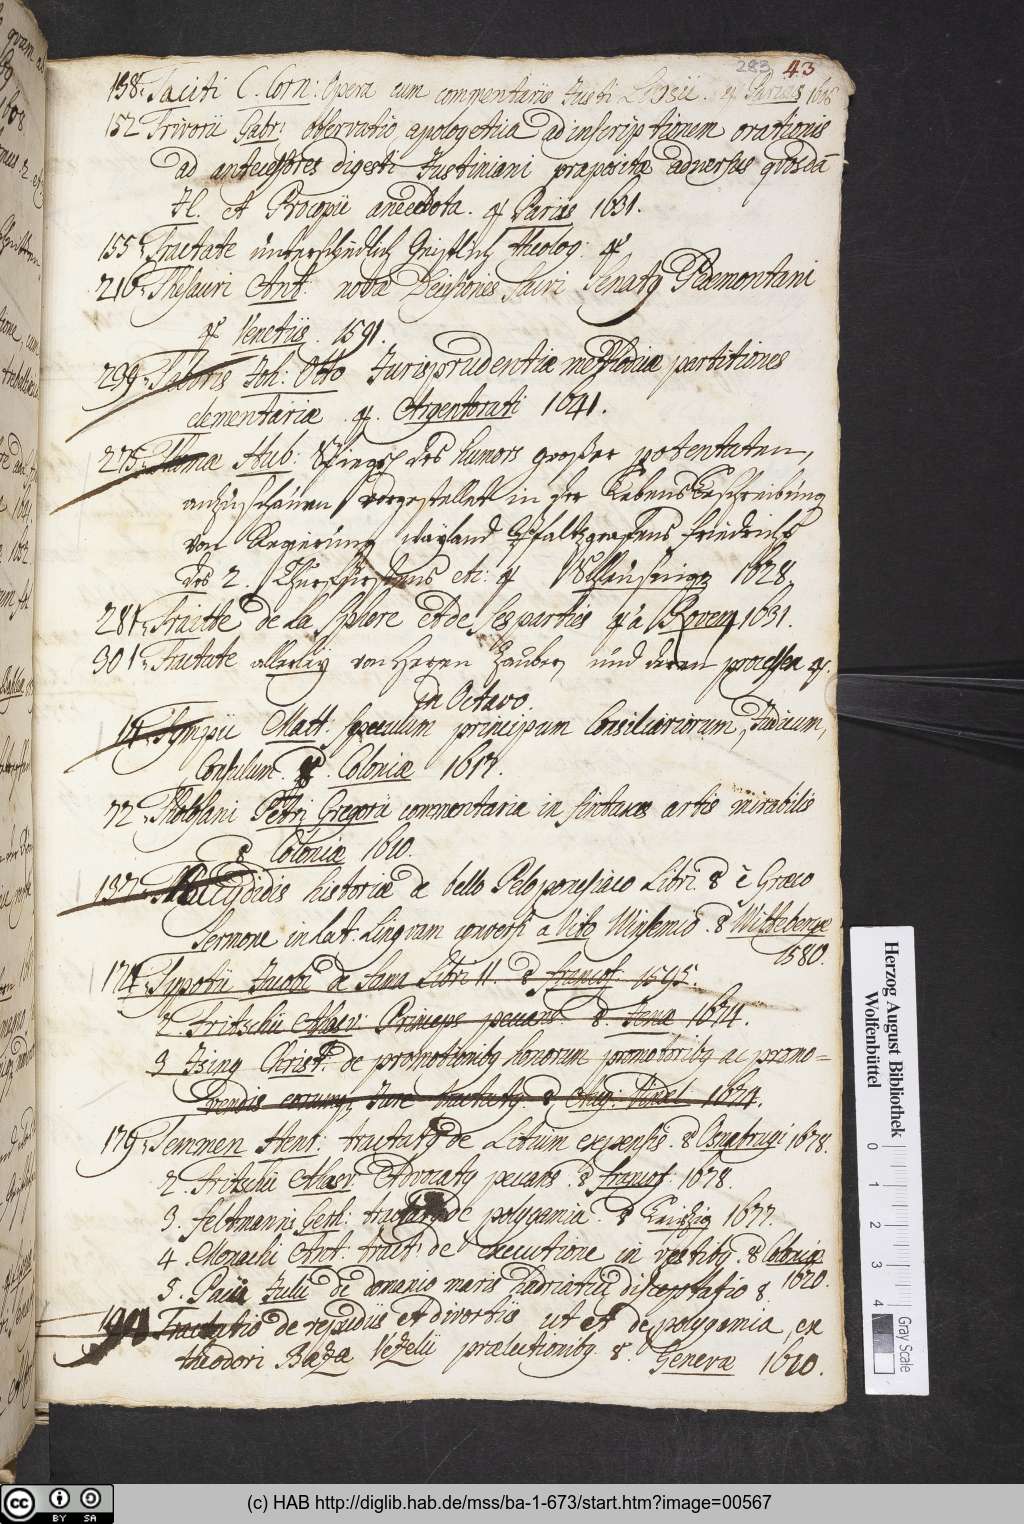 283 43
138. Taciti C. Corn: Opera cum commentario Justi Lipsii. 4 Parisiis 1608
152 Trivorii Gabr: observatio apologetica ad inscriptionem orationis
ad antecessores digesti Justiniani praepositae adversus quosdã
Jl. et Procopii anecdota. 4 Parisiis 1631.
155. Tractate unterschiedlich Geistlich theolog: 4
216. Thesauri Ant: novae Decisiones Sacri Senatq Pedemontani
4 Venetiis. 1591.
239. Taboris Joh: Otto Jurisprudentiae methodicae partitiones
elementariae. 4. Argentorati 1641.
275. Thomae Hub: Spiegel des humors großer potentaten,
anzuschauen vorgestellet in der Lebensbeschreibung
von Regierung wayland Pfaltzgrafens Friedrichs
des 2. Churfürstens etc: 4 Schleusinge 1628.
281. Traitté de La Sphere et de ses parties 4 à Roven 1631.
301. Tractate allerley von Hexen Zauber, und deren processen 4.
in Octavo.
14. Tympii Matt. Speculum principum Consiliariorum, Judicum,
Consulum. 8. Coloniae 1617.
72. Tholosani Petri Gregorii commentaria in sintaxes artis mirabilis
8 Coloniae 1610.
137. Thucydidis historiae de bello Peloponesiaco Libri 8 è Graeco
Sermone in Lat. Lingvam conversi a Vito Winsemio. 8 Witteberge
1580.
174. Typotii Jacobi de fama Libri II. 8 francof. 1595.
2 Fritschii Ahasv: Princeps peccans. 8. Jenae 1674.
3 Ising Christ: de promotionibq honorum promotoribq ac promo=
vendis eorumq Jure tractatq. 8 Aug: Vindel. 1674.
179. Temmen Henr: tractatq de Litium expensis. 8 Osnabrugi 1678.
2. Fritschii Ahasv. Advocatq peccans. 8 francof. 1678.
3. Feltmanni Gerh: tractatq de polygamia. 8 Leipzig 1677.
4. Monachi Ant: tract: de executione in vestibq. 8 Coloniae
1620.
5. Pacii Julii de domanio maris hadriatici disceptatio 8.
Tractatio de repudiis et divortiis ut et de polygamia, ex
theodori Bezae Vezelii praelectionibq. 8. Genevae 1610.
Herzog August Bibliothek
Wolfenbüttel
0 1 2 3 4
Gray Scale
cc BY SA
(c) HAB http://diglib.hab.de/mss/ba-1-673/start.htm?image=00567